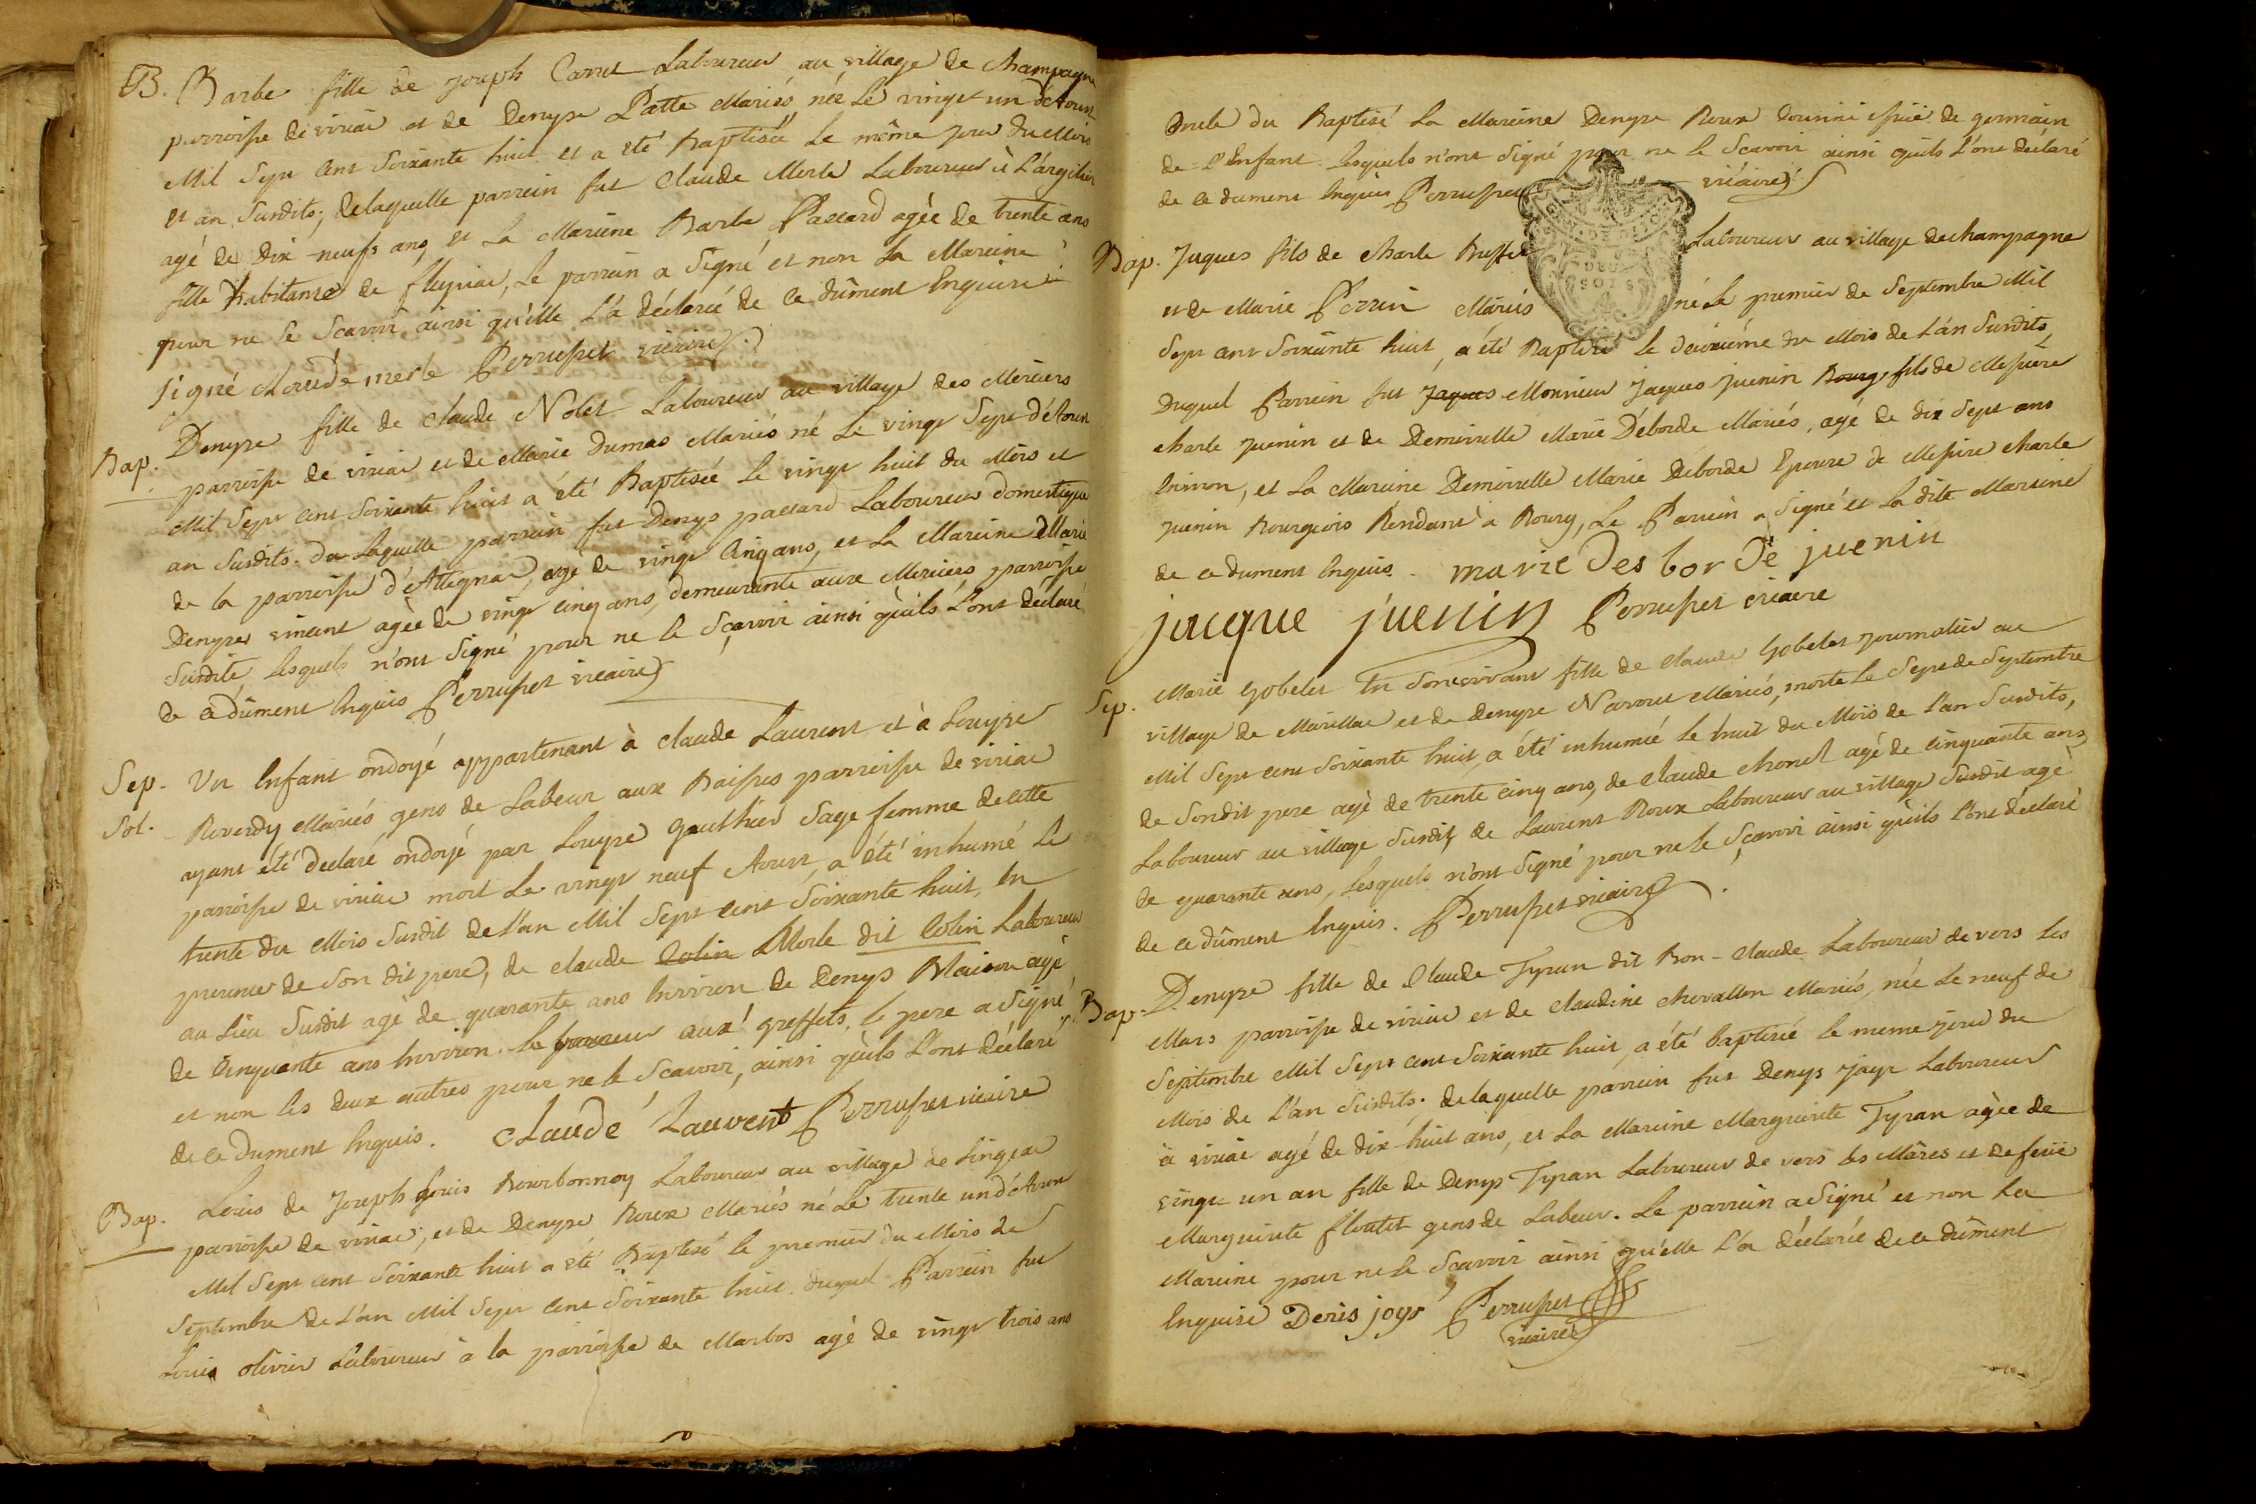 B. Barbe fille de joseph Carret Laboureur au village de champagne
parroisse de viriac et de Denyse Patte Mariés née Le vingt un d'Aoust
Mil Sept Cent Soixante huit et a été Baptisée Le même jour du Mois
et an Susdits, de laquelle parrain fut Claude Merle Laboureur à L'argilier
agé de Dix neufs ans, et La Mareine Barbe Paccard agée de trente ans
fille habitante de fleyriac, Le parrain a Signé et non La Mareine
pour ne Le Scavoir ainsi qu'elle L'a déclaré de ce dûment Enquise
Signé claude merle Perruset vicaire
Bap. Denyse fille de claude Nolet Laboureur au village des Merciers
parroisse de viriac et de Marie Dumas Mariés né Le vingt Sept d'Aoust
Mil Sept Cent Soixante huit a été Baptisée Le vingt huit du Mois et
an Susdits. de Laquelle parrain fut Denys paccard Laboureur domestique
de la parroisse d'Attignac, agé de vingt Cinq ans, et La Mareine Marie
Denyse vincent agée de vingt cinq ans, demeurante aux Merciers parroisse
Susdite, Lesquels n'ont Signé pour ne le Scavoir ainsi qu'ils L'ont déclaré
de ce dûment Enquis Perruset vicaire
Sep. Un Enfant ondoyé appartenant à claude Laurent et à Louyse
Sol. Reverdy Mariés gens de Labeur aux Baisses parroisse de viriac
ayant été declaré ondoyé par Louyse Gauthier Sage femme de cette
parroisse de viriac mort Le vingt neuf Aoust, a été inhumé Le
trente du Mois Susdit de L'an Mil Sept Cent Soixante huit, En
presence de Son dit pere, de claude Colin Merle dit Colin Laboureur
au Lieu Susdit agé de quarante ans Environ de Denys Blaison agé
de Cinquante ans Environ. Laboureur aux greffets, le pere a Signé
et non les deux autres pour ne le Scavoir, ainsi qu'ils L'ont déclaré
de ce dument Enquis. claude Laurent Perruset vicaire
Bap. Louis de Joseph Louis Bourbonnoy Laboureur au village de Lingeat
parroisse de viriac, et de Denyse Roux Mariés né Le trente un d'Aoust
Mil Sept cent Soixante huit a été Baptisé le premier du Mois de
Septembre de L'an Mil Sept Cent Soixante huit. duquel Parrein fut
Louis olivier Laboureur à la parroisse de Marbos agé de vingt trois ans
oncle du Baptisé La Mareine Denyse Roux Cousine issüe de germain
de L'Enfant. Lesquels n'ont Signé pour ne le Scavoir ainsi qu'ils L'ont déclaré
de ce dument Enquis Perruset vicaire
DEUX SOLS
Bap. Jaques fils de charle Buffet Laboureur au village de champagne
et de Marie Perrin Mariés né Le premier de Septembre Mil
Sept cent Soixante huit, a été Baptisé le deuxiéme du Mois de L'an Susdits,
Duquel Parrein fut Jaques Monsieur Jaques Juenin Bourg fils de Messire
charle Juenin et de Demoiselle Marie Déborde Mariés, agé de dix Sept ans
Environ, et La Mareine Demoiselle Marie Déborde Epouse de Messire charle
Juenin Bourgeois Residant a Bourg, Le Parrein a Signé et La dite Mareine
de ce dument Enquis. marie des bor de juenin
jacque juenin Perruset vicaire
Sep. Marie Gobelet En Son vivant fille de claude Gobelet journalier au
village de Marillac et de Denyse Navoret Mariés, morte Le Sept de Septembre
Mil Sept cent Soixante huit, a été inhumée le huit du Mois de L'an Susdits,
de Sondit pere agé de trente cinq ans, de claude chonel agé de cinquante ans
Laboureur au village Susdit, de Laurent Roux Laboureur au village Susdit agé
de quarante ans, Lesquels n'ont Signé pour ne le Scavoir ainsi qu'ils L'ont déclaré
de ce dûment Enquis. Perruset vicaire
Bap. Denyse fille de Claude Tyran dit Bon-Claude Laboureur de vers Les
Mars parroisse de viriac et de claudine chevallon Mariés, née Le neuf de
Septembre Mil Sept cent Soixante huit, a été baptisée le meme jour du
Mois de L'an Susdits. de laquelle parrein fut Denys Jayr Laboureur
à viriac agé de dix-huit ans, et La Mareine Marguerite Tyran agée de
vingt un an fille de Denys Tyran Laboureur de vers Les Mares et de feüe
Marguerite floutet gens de Labeur. Le parrein a Signé et non La
Mareine pour ne le Scavoir ainsi qu'elle L'a déclarée de ce dûment
Enquise Denis joyr Perruset
vicaire